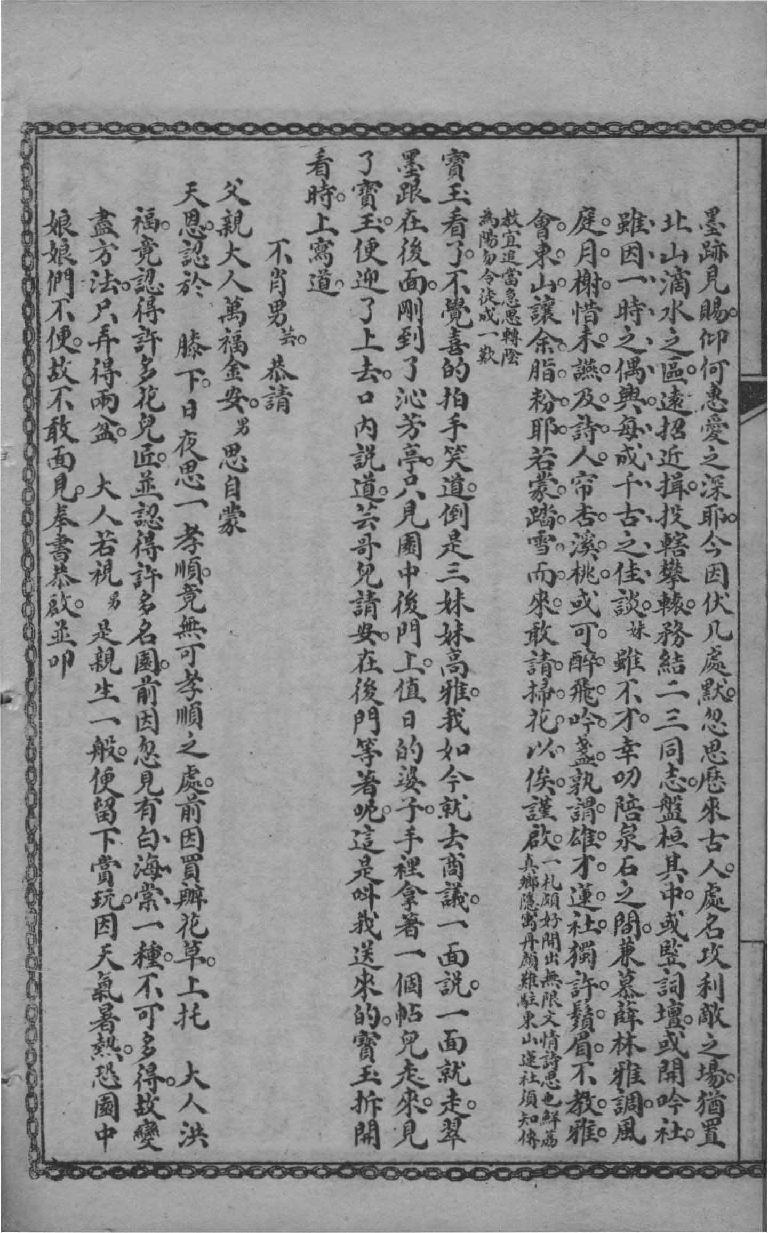 墨跡見賜。仰何惠愛之深耶。今因伏几處默。忽思歷來古人。處名攻利敵之場。猶置
北山滴水之區。遠招近揖。投轄攀轅。務結二三同志。盤桓其中。或竪詞壇。或開吟社。
雖因一時之偶興。每成千古之佳談。妹雖不才。幸叨陪泉石之間。兼慕薛林雅調。風
庭月榭。惜未讌及詩人。帘杏溪桃。或可醉飛吟盞。孰謂雄才蓮社。獨許鬚眉。不教雅
會東山。讓余脂粉耶。若蒙踏雪而來。敢請掃花以俟。謹啟。一札頗好開出無限文情詩思也鮮薦
真鄉隱寫丹顏難駐東山蓮社須知傳
教宜追當急思轉陰
為陽勿令徒成一歎
寶玉看了。不覺喜的拍手笑道。倒是三妹妹高雅。我如今就去商議。一面說。一面就走。翠
墨跟在後面。剛到了沁芳亭。只見園中後門上。值日的婆子。手裡拿著一個帖兒走來。見
了寶玉。便迎了上去。口內說道。芸哥兒請安。在後門等著呢。這是呌我送來的。寶玉拆開
看時。上寫道。
不肖男芸。恭請
父親大人萬福金安。男思自蒙
天恩。認於 膝下。日夜思一孝順。竟無可孝順之處。前因買辦花草。上托 大人洪
福。竟認得許多花兒匠。並認得許多名園。前因忽見有白海棠一種。不可多得。故變
盡方法。只弄得兩盆。 大人若視男是親生一般。便留下賞玩。因天氣暑熱。恐園中
娘娘們不便。故不敢面見。奉書恭啟。並叩